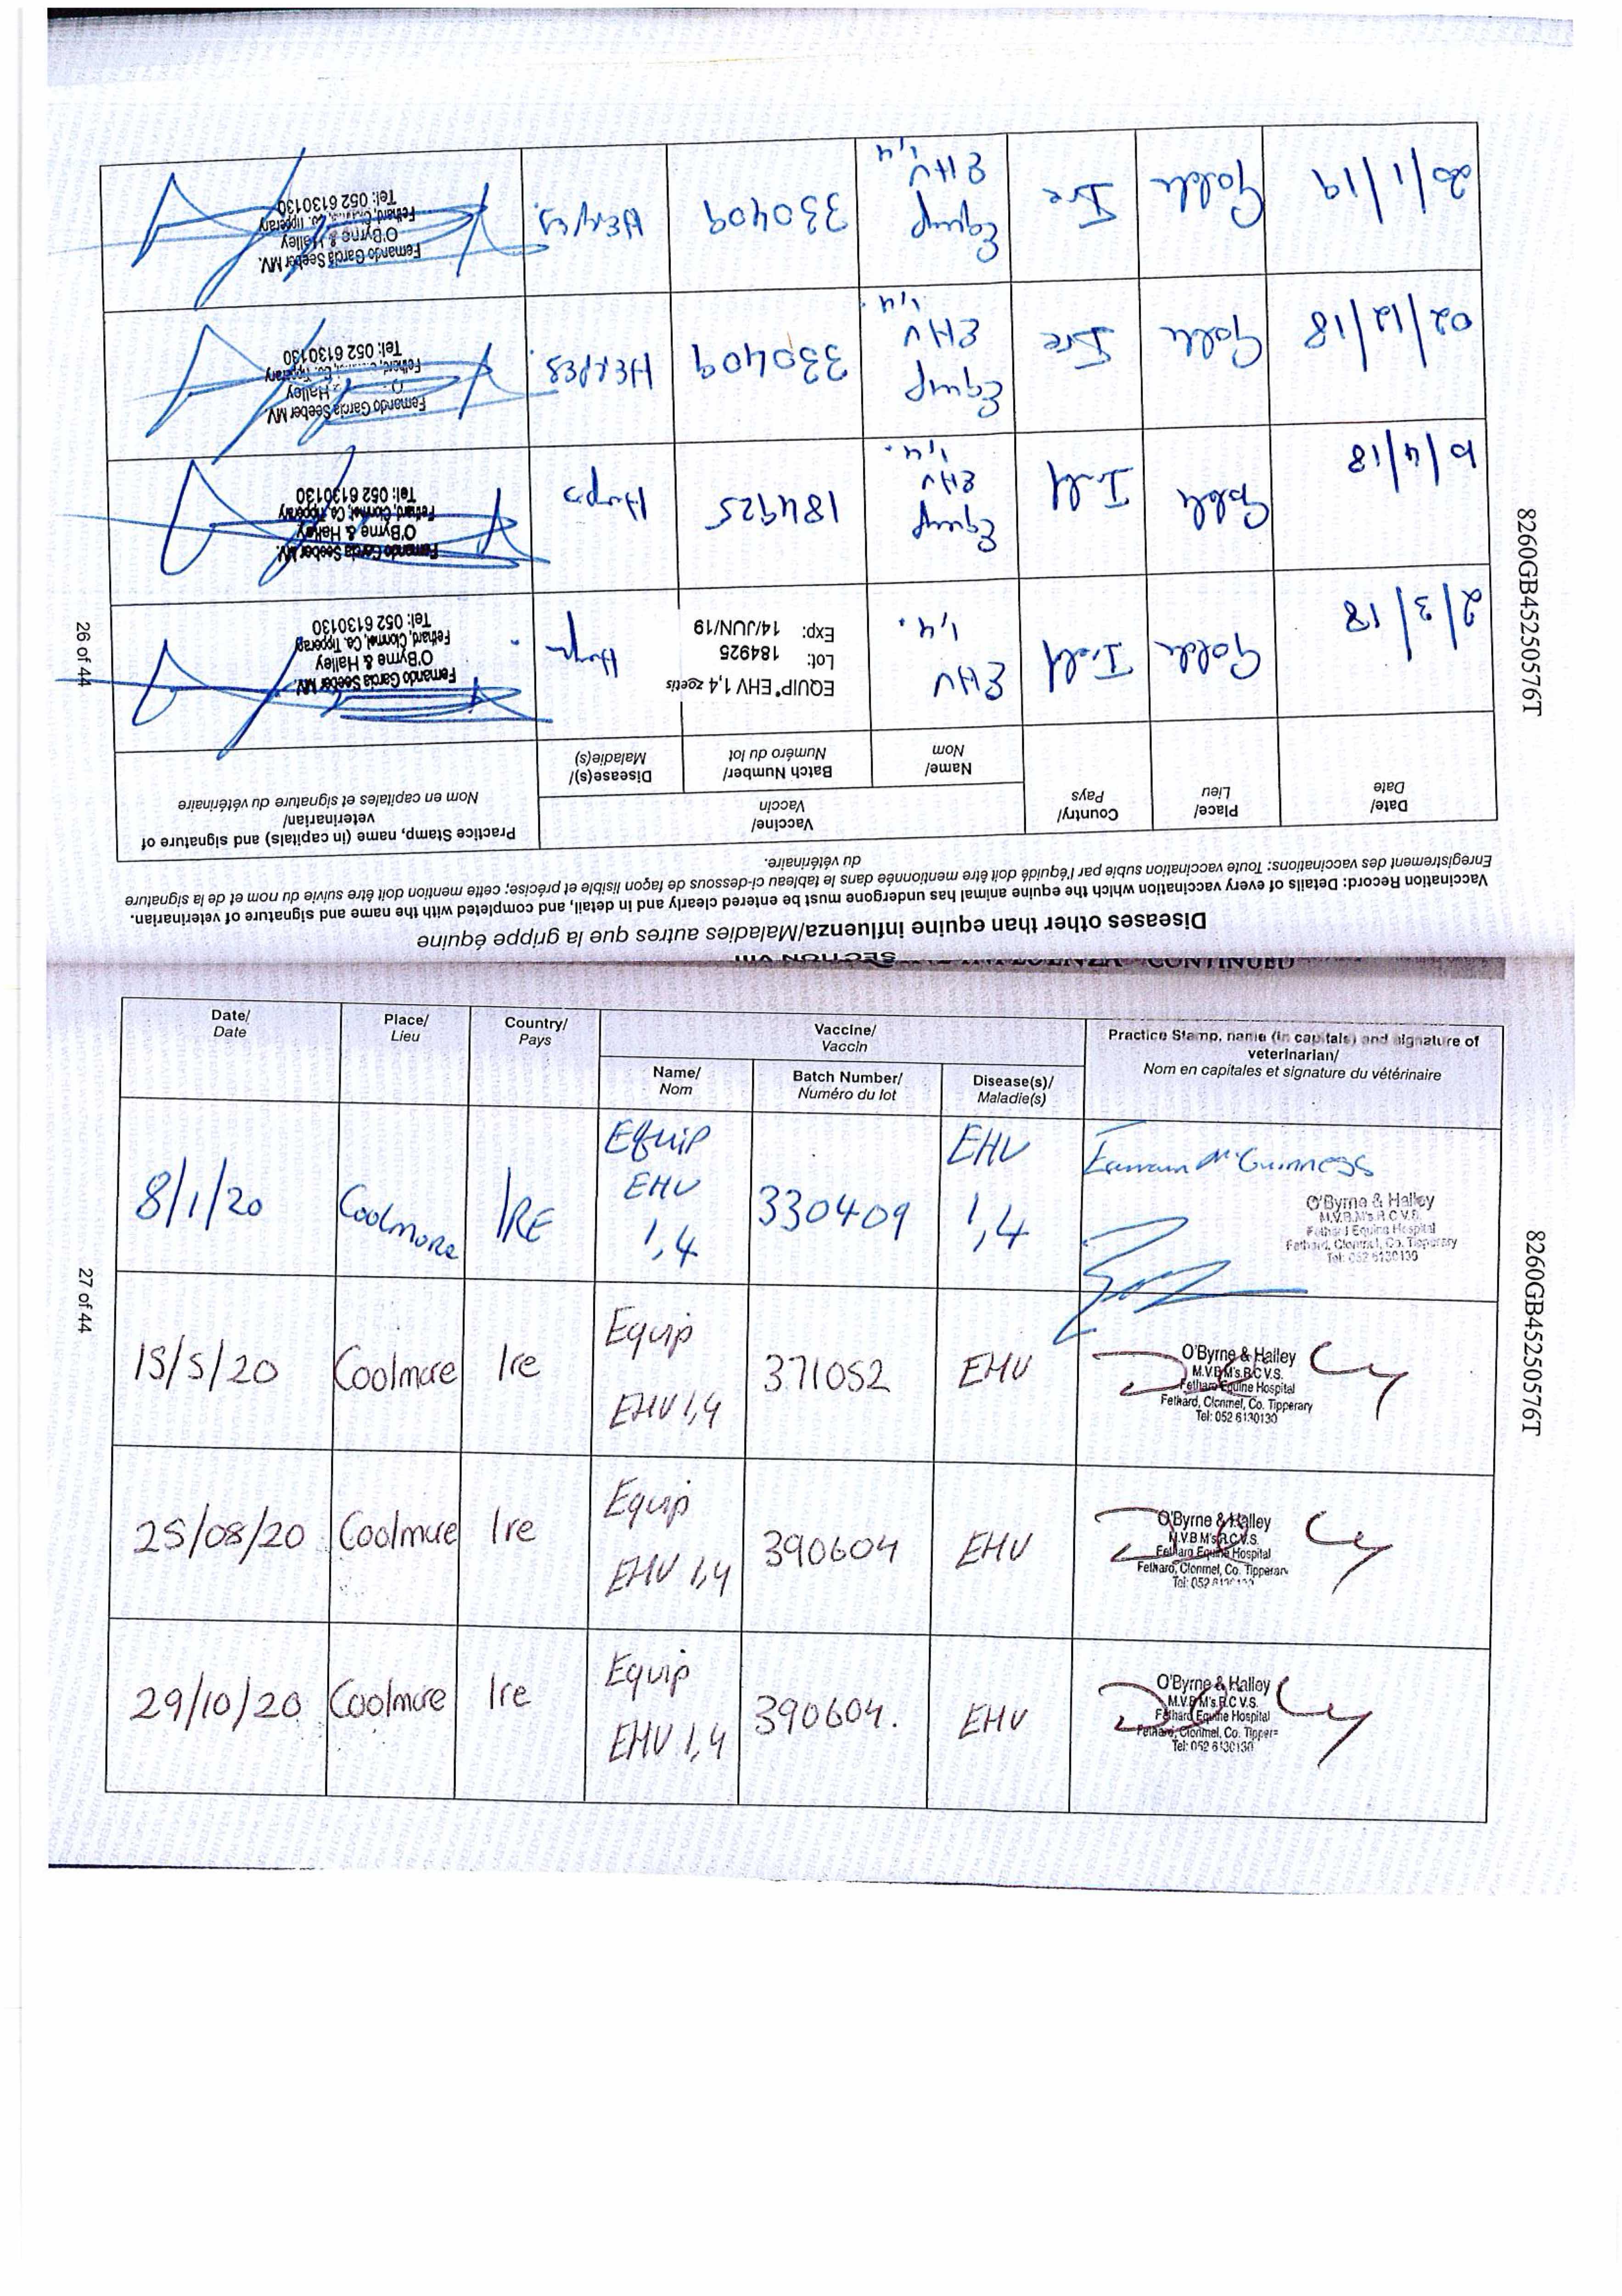 SECTION VIII
Diseases other than equine influenza/Maladies autres que la grippe équine
Vaccination Record: Details of every vaccination which the equine animal has undergone must be entered clearly and in detail, and completed with the name and signature of veterinarian.
Enregistrement des vaccinations: Toute vaccination subie par l'équidé doit être mentionnée dans le tableau ci-dessous de façon lisible et précise; cette mention doit être suivie du nom et de la signature
du vétérinaire.
Date/
Date
Place/
Lieu
Country/
Pays
Vaccine/
Vaccin
Name/
Nom
Batch Number/
Numéro du lot
Disease(s)/
Maladie(s)
Practice Stamp, name (in capitals) and signature of
veterinarian/
Nom en capitales et signature du vétérinaire
2/3/18
EHV
1,4.
EQUIP EHV 1,4 zoetis
Lot: 184925
Exp: 14/JUN/19
Fernando Garcia Seeber MV.
O'Byrne & Halley
Fethard, Clonmel, Co. Tipperary
Tel: 052 6130130
/4/18
Equip
EHV
1,4.
184925
Fernando Garcia Seeber MV.
O'Byrne & Halley
Fethard, Clonmel, Co. Tipperary
Tel: 052 6130130
02/12/18
Ire
Equip
EHV
1,4.
330409
HERPES
Fernando Garcia Seeber MV.
Halley
Fethard, Co. Tipperary
Tel: 052 6130130
20/1/19
Ire
Equip
EHV
1,4
330409
Fernando Garcia Seeber MV.
O'Byrne & Halley
Fethard, Co. Tipperary
Tel: 052 6130130
26 of 44
8260GB45250576T
CONTINUED
Date/
Date
Place/
Lieu
Country/
Pays
Vaccine/
Vaccin
Name/
Nom
Batch Number/
Numéro du lot
Disease(s)/
Maladie(s)
Practice Stamp, name (in capitals) and signature of
veterinarian/
Nom en capitales et signature du vétérinaire
8/1/20
Coolmore
IRE
Equip
EHV
1,4
330409
EHV
1,4
McGuinness
O'Byrne & Halley
M.V.B.M's.R.C.V.S.
Fethard Equine Hospital
Fethard, Clonmel, Co. Tipperary
Tel: 052 6130130
15/5/20
Coolmore
Ire
Equip
EHV 1,4
371052
EHV
O'Byrne & Halley
M.V.B.M's.R.C.V.S.
Fethard Equine Hospital
Fethard, Clonmel, Co. Tipperary
Tel: 052 6130130
25/08/20
Coolmore
Ire
Equip
EHV 1,4
390604
EHV
O'Byrne & Halley
M.V.B.M's.R.C.V.S.
Fethard Equine Hospital
Fethard, Clonmel, Co. Tipperary
Tel: 052 6130130
29/10/20
Coolmore
Ire
Equip
EHV 1,4
390604.
EHV
O'Byrne & Halley
M.V.B.M's.R.C.V.S.
Fethard Equine Hospital
Fethard, Clonmel, Co. Tipper
Tel: 052 6130130
27 of 44
8260GB45250576T